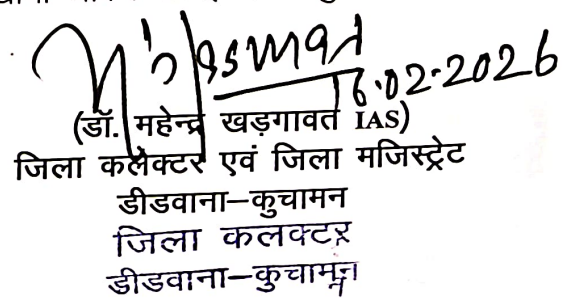 16.02.2026
(डॉ. महेन्द्र खड़गावत IAS)
जिला कलेक्टर एवं जिला मजिस्ट्रेट
डीडवाना–कुचामन
जिला कलक्टर
डीडवाना–कुचामन